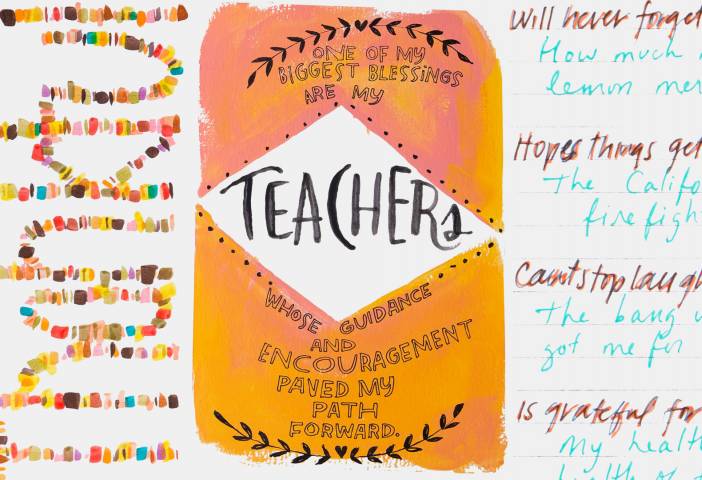 ONE OF MY
BIGGEST BLESSINGS
ARE MY
TEACHERS
WHOSE GUIDANCE
AND
ENCOURAGEMENT
PAVED MY
PATH
FORWARD.
Will never forget
How much
lemon mer
Hopes things get
The Califo
firefigh
Can't stop laugh
The bang
got me for
is grateful for
My health
health of